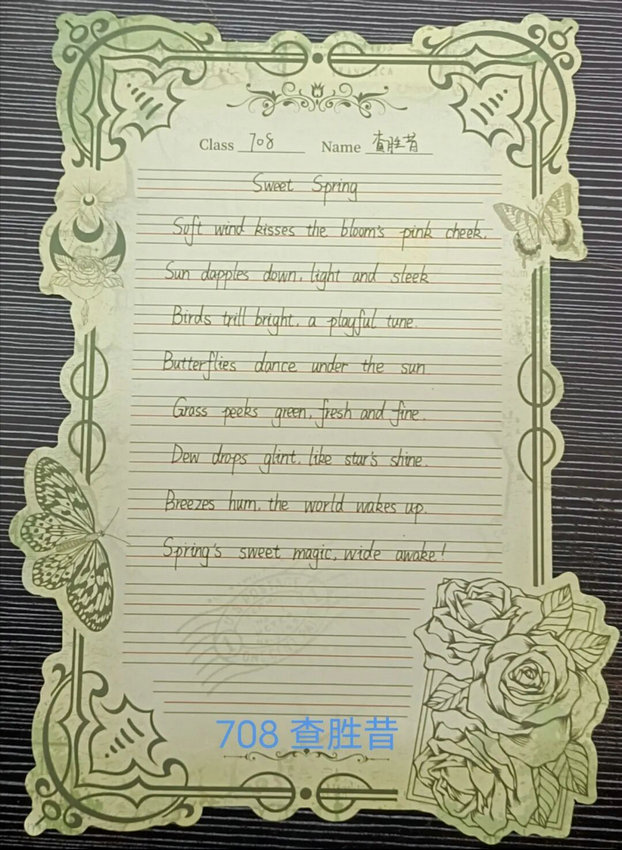 Class 708 Name 查胜昔
Sweet Spring
Soft wind kisses the bloom's pink cheek.
Sun dapples down, light and sleek
Birds trill bright, a playful tune.
Butterflies dance under the sun
Grass peeks green, fresh and fine.
Dew drops glint, like star's shine.
Breezes hum, the world wakes up.
Spring's sweet magic, wide awake!
708 查胜昔